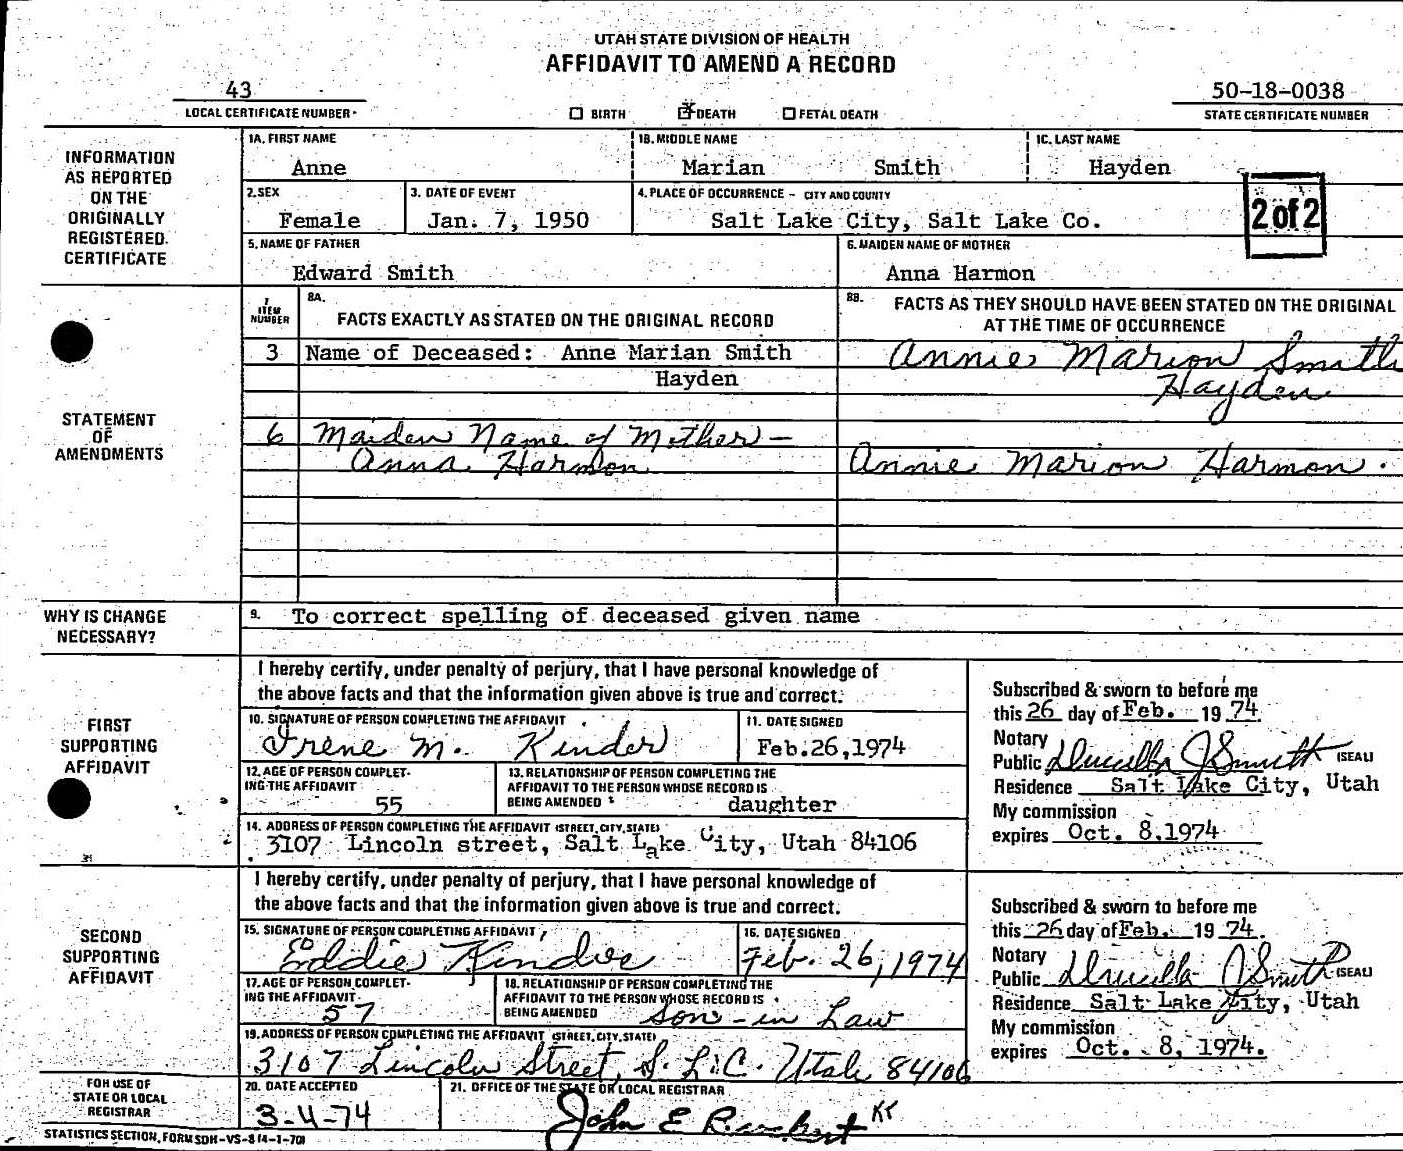 UTAH STATE DIVISION OF HEALTH
AFFIDAVIT TO AMEND A RECORD
43
LOCAL CERTIFICATE NUMBER
BIRTH
x DEATH
FETAL DEATH
50-18-0038
STATE CERTIFICATE NUMBER
INFORMATION
AS REPORTED
ON THE
ORIGINALLY
REGISTERED
CERTIFICATE
1A. FIRST NAME
Anne
1B. MIDDLE NAME
Marian Smith
1C. LAST NAME
Hayden
2. SEX
Female
3. DATE OF EVENT
Jan. 7, 1950
4. PLACE OF OCCURRENCE - CITY AND COUNTY
Salt Lake City, Salt Lake Co.
2 of 2
5. NAME OF FATHER
Edward Smith
6. MAIDEN NAME OF MOTHER
Anna Harmon
STATEMENT
OF
AMENDMENTS
7
ITEM
NUMBER
8A.
FACTS EXACTLY AS STATED ON THE ORIGINAL RECORD
8B. FACTS AS THEY SHOULD HAVE BEEN STATED ON THE ORIGINAL
AT THE TIME OF OCCURRENCE
3 Name of Deceased: Anne Marian Smith
Hayden
Annie Marion Smith
Hayden
6 Maiden Name of Mother -
Anna Harmon
Annie Marion Harmon.
WHY IS CHANGE
NECESSARY?
9. To correct spelling of deceased given name
FIRST
SUPPORTING
AFFIDAVIT
I hereby certify, under penalty of perjury, that I have personal knowledge of
the above facts and that the information given above is true and correct.
10. SIGNATURE OF PERSON COMPLETING THE AFFIDAVIT
Irene M. Kinder
11. DATE SIGNED
Feb.26,1974
12. AGE OF PERSON COMPLET-
ING THE AFFIDAVIT
55
13. RELATIONSHIP OF PERSON COMPLETING THE
AFFIDAVIT TO THE PERSON WHOSE RECORD IS
BEING AMENDED
daughter
14. ADDRESS OF PERSON COMPLETING THE AFFIDAVIT (STREET, CITY, STATE)
3107 Lincoln street, Salt Lake City, Utah 84106
Subscribed & sworn to before me
this 26 day of Feb. 19 74
Notary
Public Drucilla J Smith (SEAL)
Residence Salt Lake City, Utah
My commission
expires Oct. 8.1974
SECOND
SUPPORTING
AFFIDAVIT
I hereby certify, under penalty of perjury, that I have personal knowledge of
the above facts and that the information given above is true and correct.
15. SIGNATURE OF PERSON COMPLETING AFFIDAVIT
Eddie Kinder
16. DATE SIGNED
Feb. 26, 1974
17. AGE OF PERSON COMPLET-
ING THE AFFIDAVIT
57
18. RELATIONSHIP OF PERSON COMPLETING THE
AFFIDAVIT TO THE PERSON WHOSE RECORD IS
BEING AMENDED
Son-in Law
19. ADDRESS OF PERSON COMPLETING THE AFFIDAVIT (STREET, CITY, STATE)
3107 Lincoln Street, S. L. C. Utah 84106
Subscribed & sworn to before me
this 26 day of Feb. 19 74.
Notary
Public Drucilla J Smith (SEAL)
Residence Salt Lake City, Utah
My commission
expires Oct. 8, 1974.
FOR USE OF
STATE OR LOCAL
REGISTRAR
20. DATE ACCEPTED
3-4-74
21. OFFICE OF THE STATE OR LOCAL REGISTRAR
John E
STATISTICS SECTION, FORM SDH-VS-8 (4-1-70)